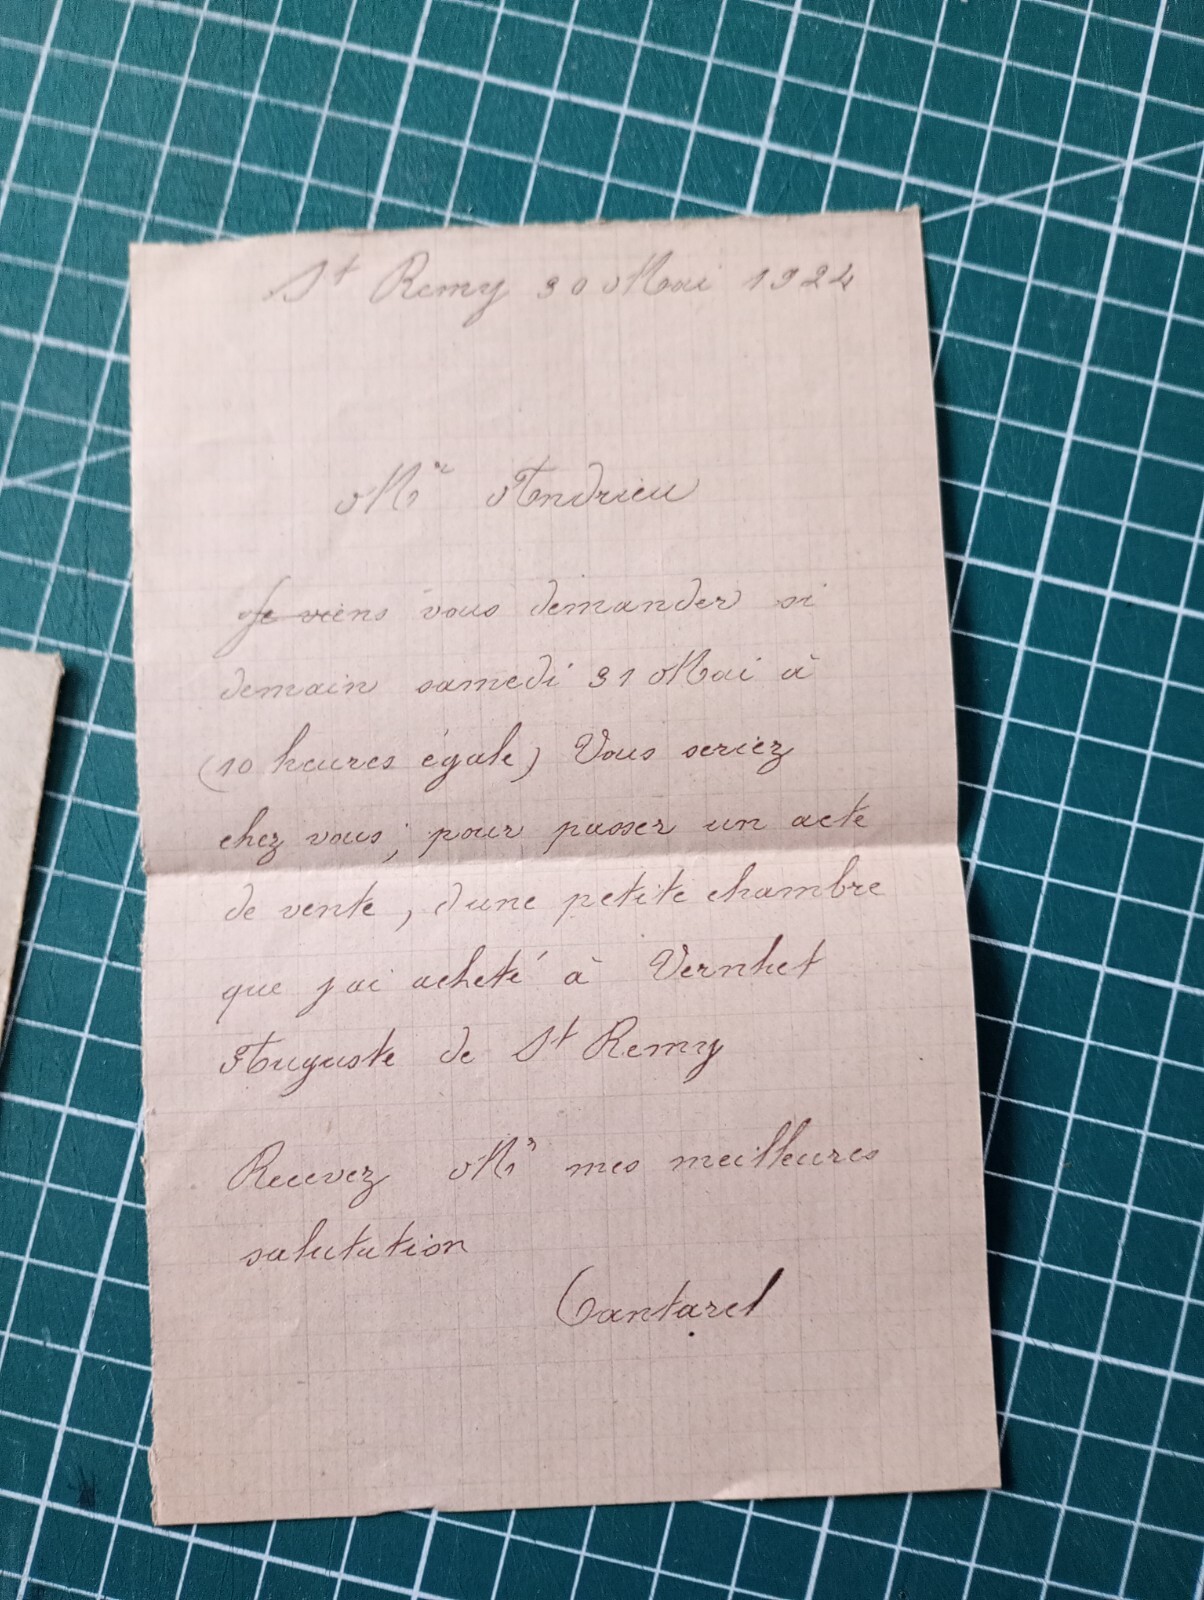 St Remy 30 Mai 1924
Mr Andrieu
Je viens vous demander si
demain samedi 31 Mai à
(10 heures égale) Vous seriez
chez vous, pour passer un acte
de vente, dune petite chambre
que jai acheté à Vernhet
Auguste de St Remy
Recevez Mr mes meilleures
salutation
Cantarel